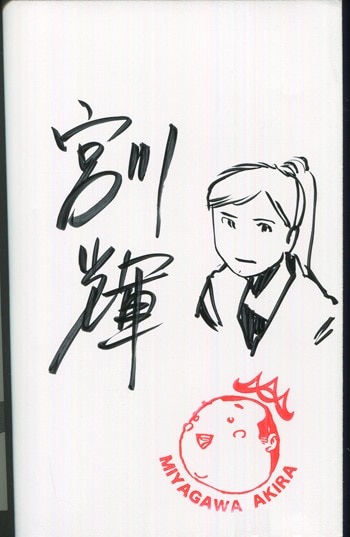 宮川
輝
MIYAGAWA AKIRA